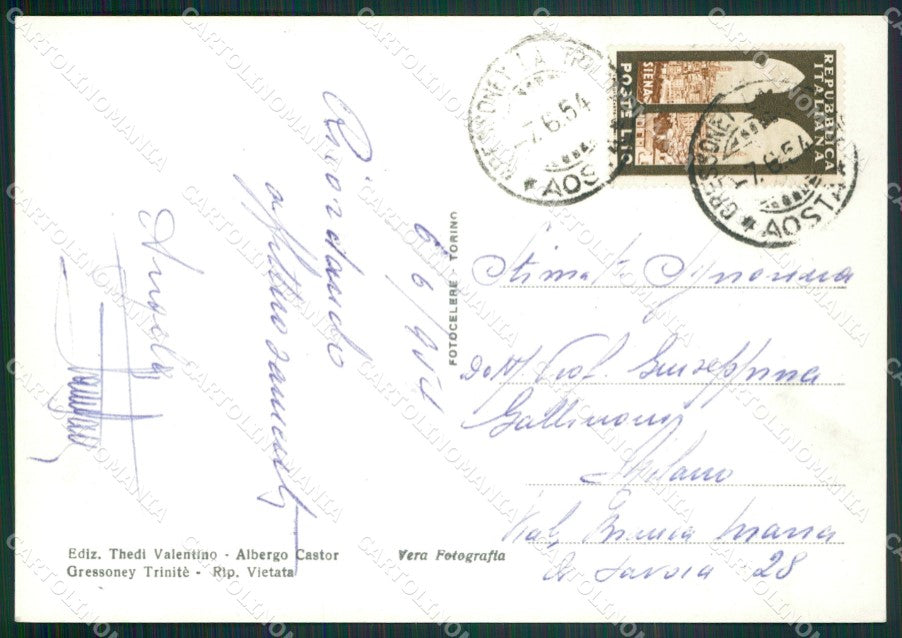 REPUBBLICA
ITALIANA
SIENA
POSTE L.10
GRESSONEY LA TRINITÉ
-7.6.54
* AOSTA *
GRESSONEY
-7.6.54
* AOSTA
Ricordando
affettuosamente
6/6/954
Angela
FOTOCELERE - TORINO
Stima Signorina
Dott. Prof. Giuseppina
Gallinoni
Milano
Bianca Maria
di Savoia 28
Ediz. Thedi Valentino - Albergo Castor
Gressoney Trinitè - Rip. Vietata
Vera Fotografia
CARTOLINOMANIA